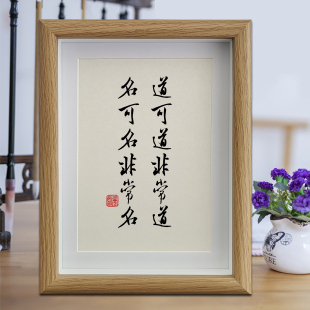 道可道非常道
名可名非常名